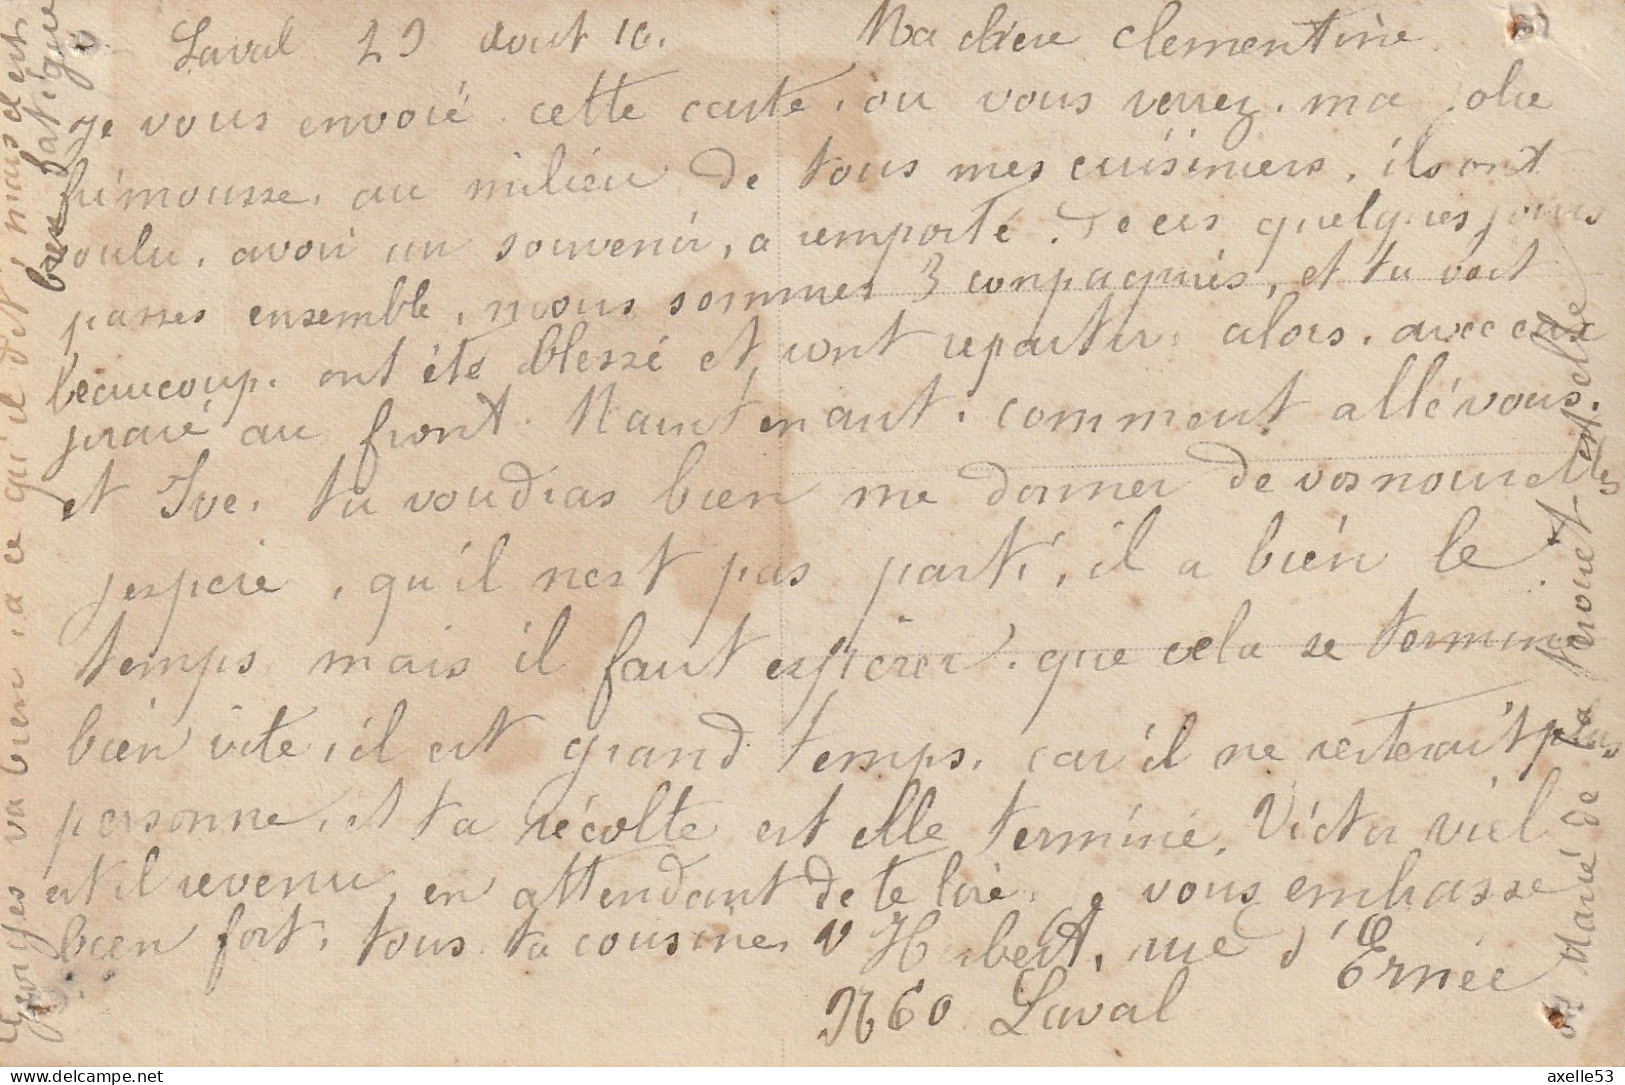 Laval 29 Aout 16. Ma chère clementine
je vous envoié cette carte, ou vous verrez, ma jolie
frimousse, au milieu de tous mes cuisiniers, ils ont
voulu, avoir un souvenir, a remporté. De ces quelques jours
passes ensemble, nous sommes 3 conpagniés, et tu voit
beaucoup, ont été blessé et sont repartir, alors, avec eux
au front. Maintenant, comment allé vous,
et Ive, tu voudras bien me donner de vos nouvelles
jespere, qu'il nest pas parti, il a bién le
temps mais il faut espérer, que cela se termine
bien vite, il est grand temps, car il ne resterait plus
personne, et ta récolte est elle terminé, Victor viel
est il revenu, en attendant de te lire, je vous embrasse
bien fort, tous ta cousine, V Hubert, rue d'Ernée
N 60 Laval
Georges va bien, a ce qu'il dit, mais il est
bien fatigué
Marie de la et elle
axelle53